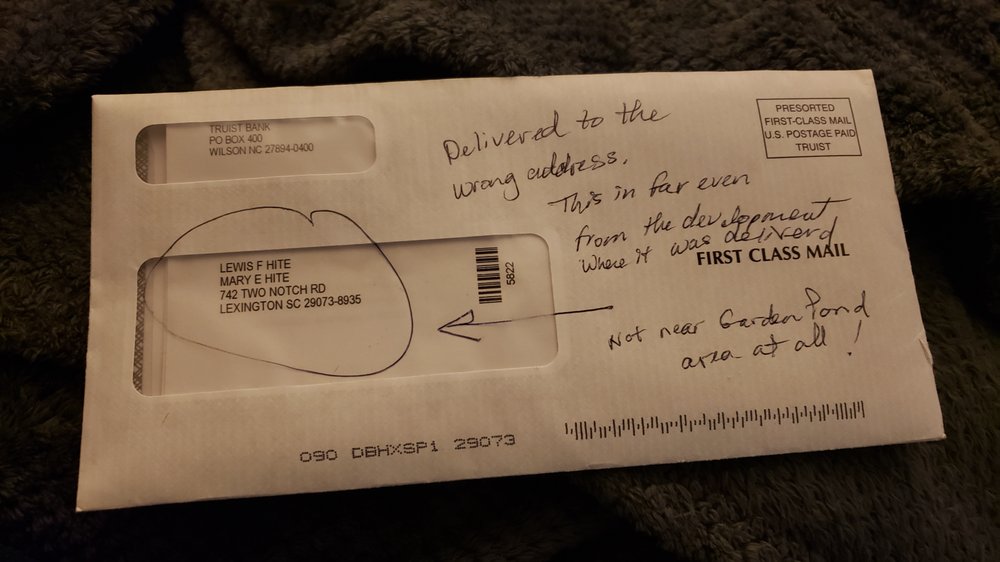 TRUIST BANK
PO BOX 400
WILSON NC 27894-0400
Delivered to the
wrong address.
This in far even
from the development
Where it was deliverd
PRESORTED
FIRST-CLASS MAIL
U.S. POSTAGE PAID
TRUIST
FIRST CLASS MAIL
LEWIS F HITE
MARY E HITE
742 TWO NOTCH RD
LEXINGTON SC 29073-8935
5822
Not near Garden Pond
area at all !
090 DBHXSP1 29073